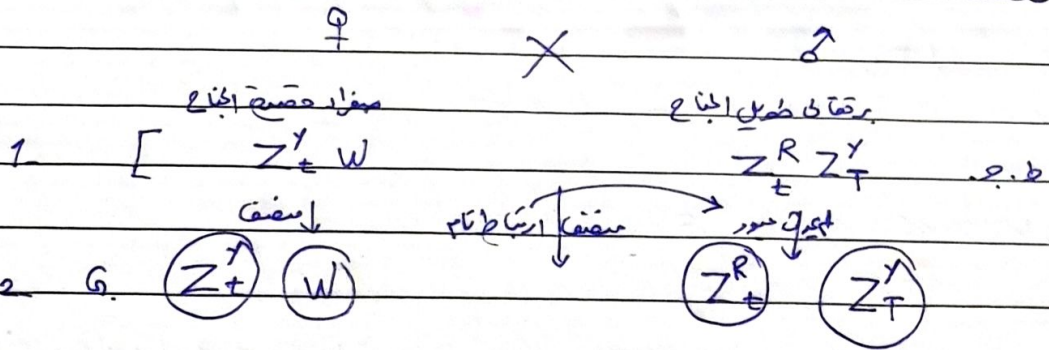 ♀ × ♂
صفراء قصيرة الجناح برتقالي طويل الجناح
1- [ Z^Y_t W Z^R_t Z^Y_T ط.ج
منصف ارتباط تام منصف عبور
2- G. Z^Y_t W Z^R_t Z^Y_T